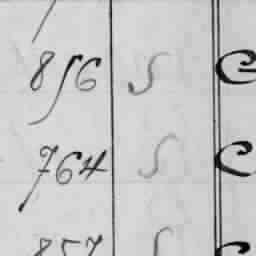 856 S C
764 S C
857 S C